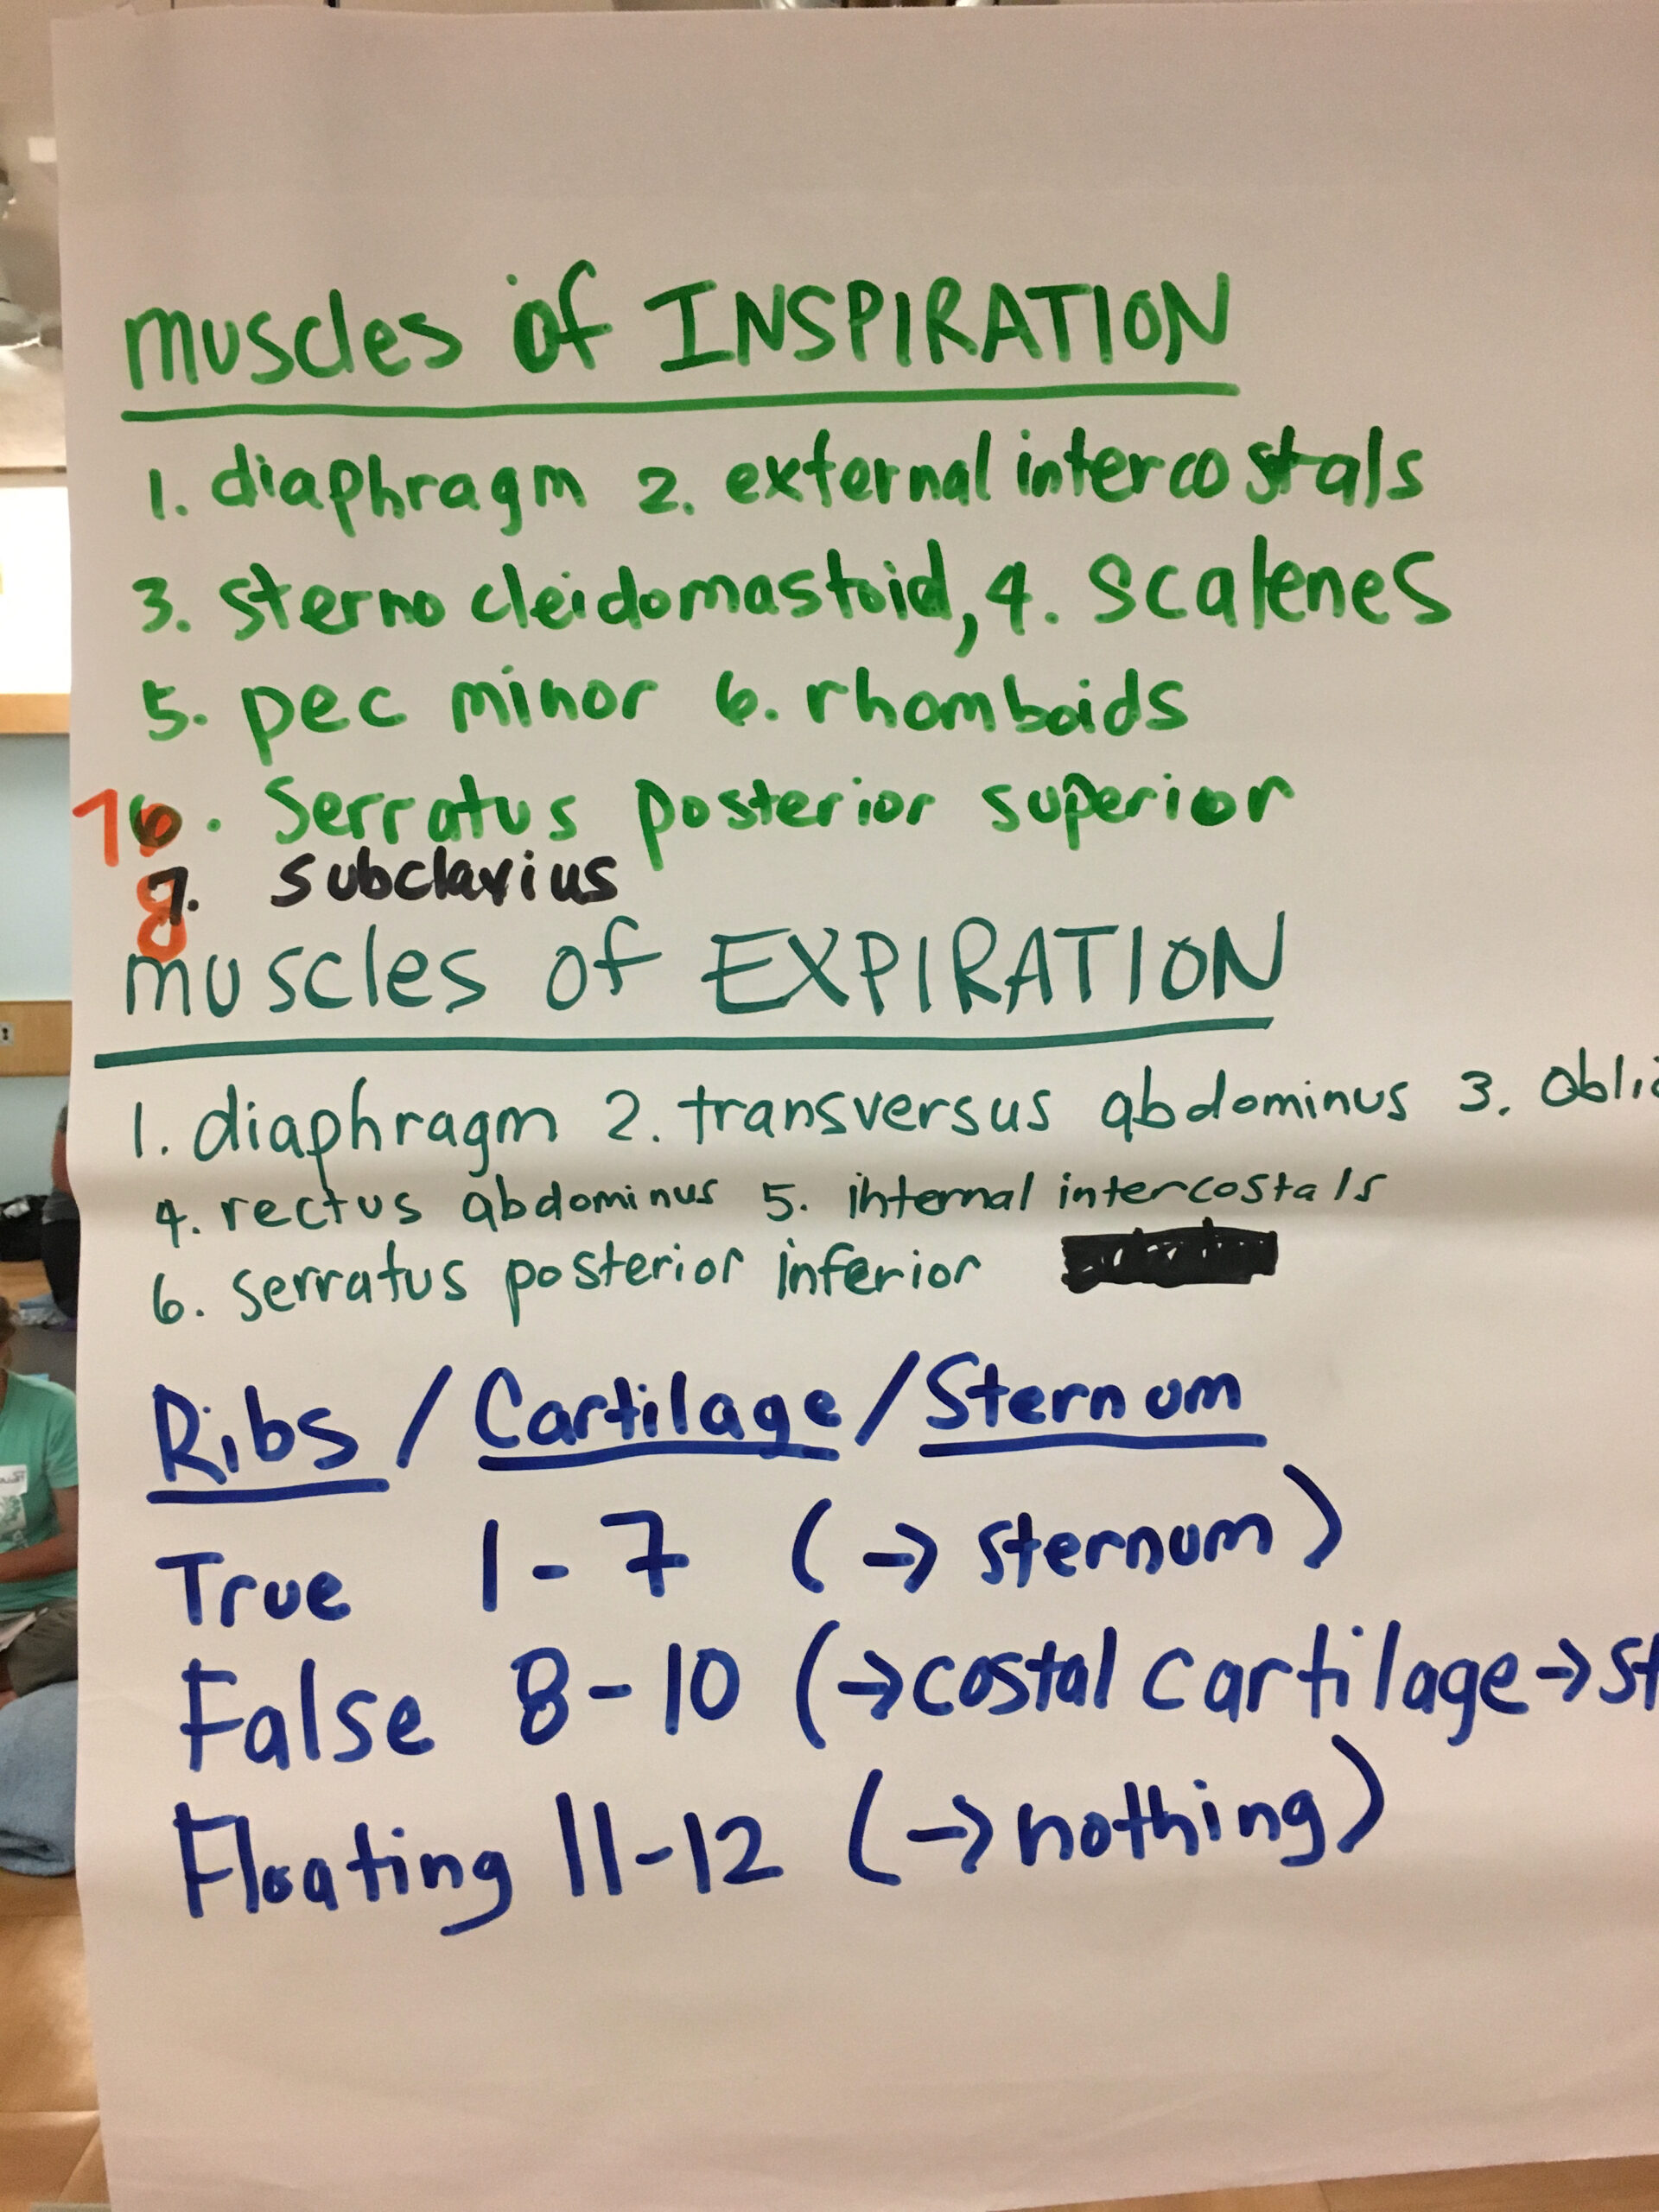 muscles of INSPIRATION
1. diaphragm 2. external intercostals
3. sterno cleidomastoid, 4. scalenes
5. pec minor 6. rhomboids
7. serratus posterior superior
8. subclavius
muscles of EXPIRATION
1. diaphragm 2. transversus abdominus 3.
4. rectus abdominus 5. internal intercostals
6. serratus posterior inferior
Ribs / Cartilage / Sternum
True 1-7 (→ sternum)
False 8-10 (→costal cartilage→st
Floating 11-12 (→nothing)